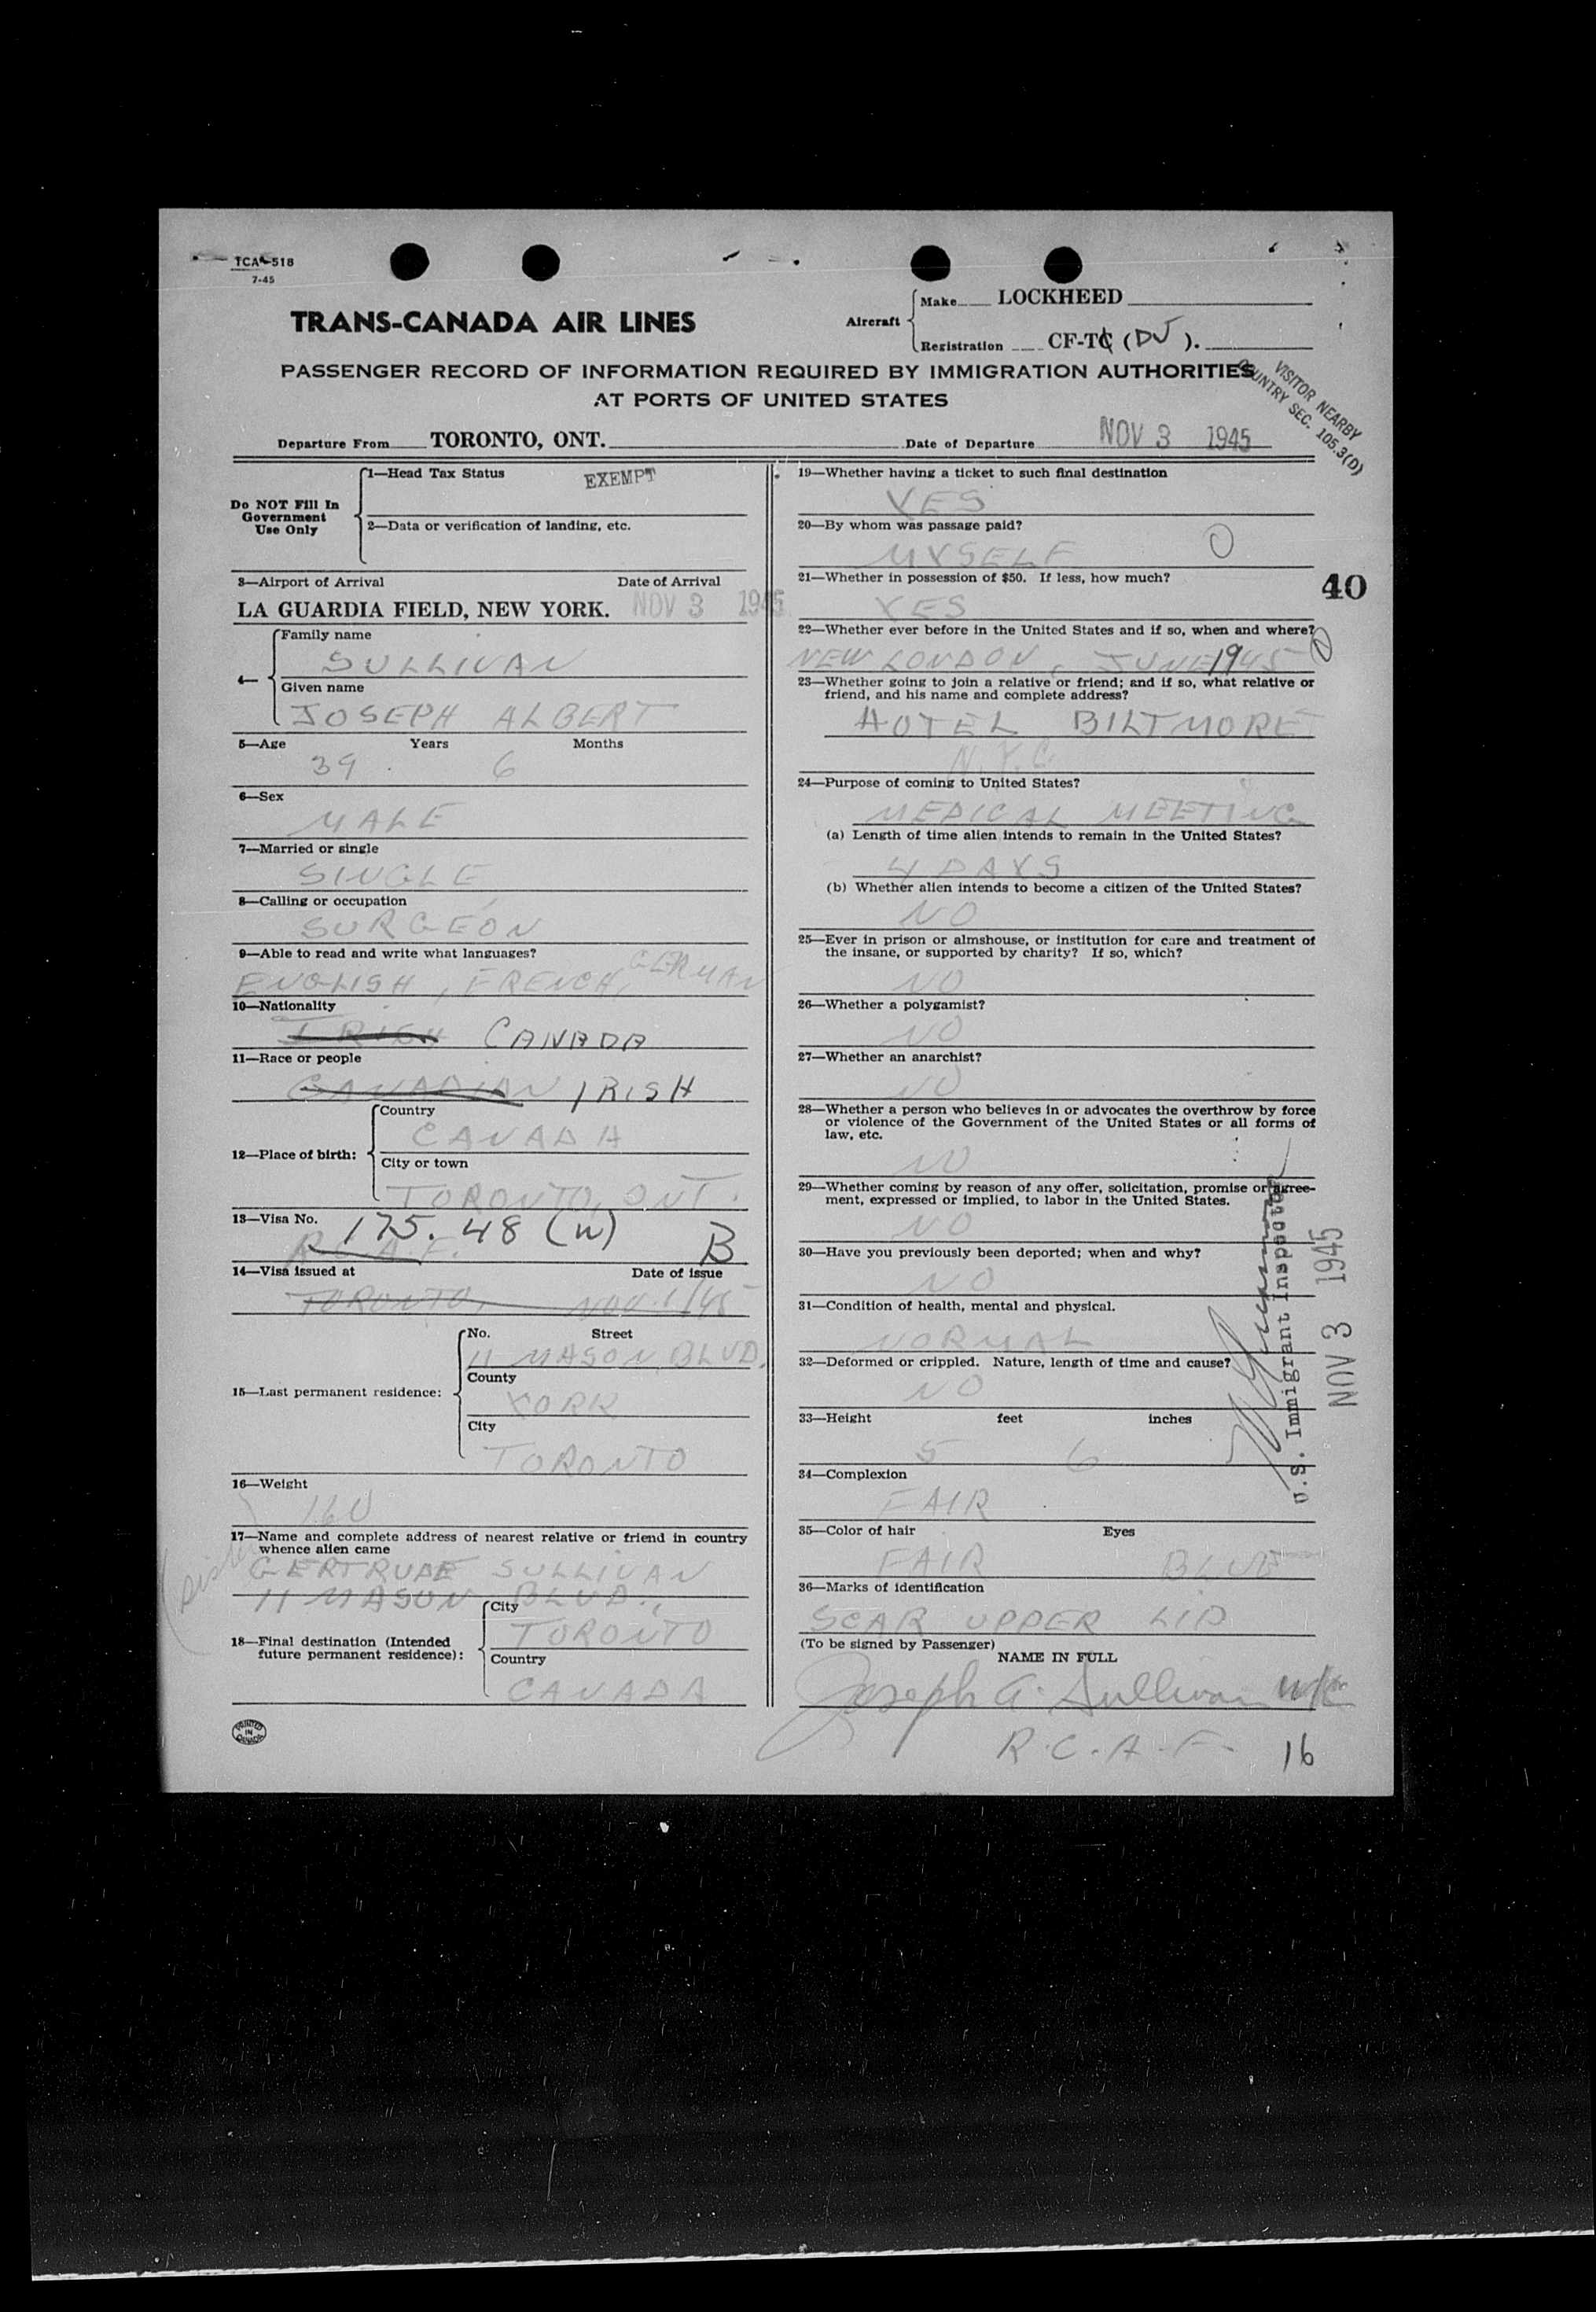 TCA-518
7-45
TRANS-CANADA AIR LINES
Aircraft
Make LOCKHEED
Registration CF-TC (DJ).
PASSENGER RECORD OF INFORMATION REQUIRED BY IMMIGRATION AUTHORITIES
AT PORTS OF UNITED STATES
VISITOR NEARBY
COUNTRY SEC. 105.3(D)
Departure From TORONTO, ONT. Date of Departure NOV 3 1945
Do NOT Fill In
Government
Use Only
1—Head Tax Status EXEMPT
2—Data or verification of landing, etc.
3—Airport of Arrival Date of Arrival
LA GUARDIA FIELD, NEW YORK. NOV 3 1945
4—
Family name
SULLIVAN
Given name
JOSEPH ALBERT
5—Age Years Months
39 6
6—Sex
MALE
7—Married or single
SINGLE
8—Calling or occupation
SURGEON
9—Able to read and write what languages?
ENGLISH, FRENCH, GERMAN
10—Nationality
IRISH CANADA
11—Race or people
CANADIAN IRISH
12—Place of birth:
Country
CANADA
City or town
TORONTO, ONT.
13—Visa No. 175.48 (w) B
R.C.A.F.
14—Visa issued at Date of issue
TORONTO, NOV. 1/45
15—Last permanent residence:
No. Street
11 MASON BLVD.
County
YORK
City
TORONTO
16—Weight
160
17—Name and complete address of nearest relative or friend in country
whence alien came
(sister)
GERTRUDE SULLIVAN
11 MASON BLVD.,
18—Final destination (Intended
future permanent residence):
City
TORONTO
Country
CANADA
PRINTED
IN
CANADA
19—Whether having a ticket to such final destination
YES
20—By whom was passage paid?
MYSELF 0
21—Whether in possession of $50. If less, how much?
40
YES
22—Whether ever before in the United States and if so, when and where?
NEW LONDON, JUNE 1945 0
23—Whether going to join a relative or friend; and if so, what relative or
friend, and his name and complete address?
HOTEL BILTMORE
N.Y.C.
24—Purpose of coming to United States?
MEDICAL MEETING
(a) Length of time alien intends to remain in the United States?
4 DAYS
(b) Whether alien intends to become a citizen of the United States?
NO
25—Ever in prison or almshouse, or institution for care and treatment of
the insane, or supported by charity? If so, which?
NO
26—Whether a polygamist?
NO
27—Whether an anarchist?
NO
28—Whether a person who believes in or advocates the overthrow by force
or violence of the Government of the United States or all forms of
law, etc.
NO
29—Whether coming by reason of any offer, solicitation, promise or agree-
ment, expressed or implied, to labor in the United States.
NO
30—Have you previously been deported; when and why?
NO
31—Condition of health, mental and physical.
NORMAL
32—Deformed or crippled. Nature, length of time and cause?
NO
33—Height feet inches
5 6
34—Complexion
FAIR
35—Color of hair Eyes
FAIR BLUE
36—Marks of identification
SCAR UPPER LIP
U.S. Immigrant Inspector
NOV 3 1945
(To be signed by Passenger)
NAME IN FULL
Joseph A. Sullivan
R.C.A.F. 16